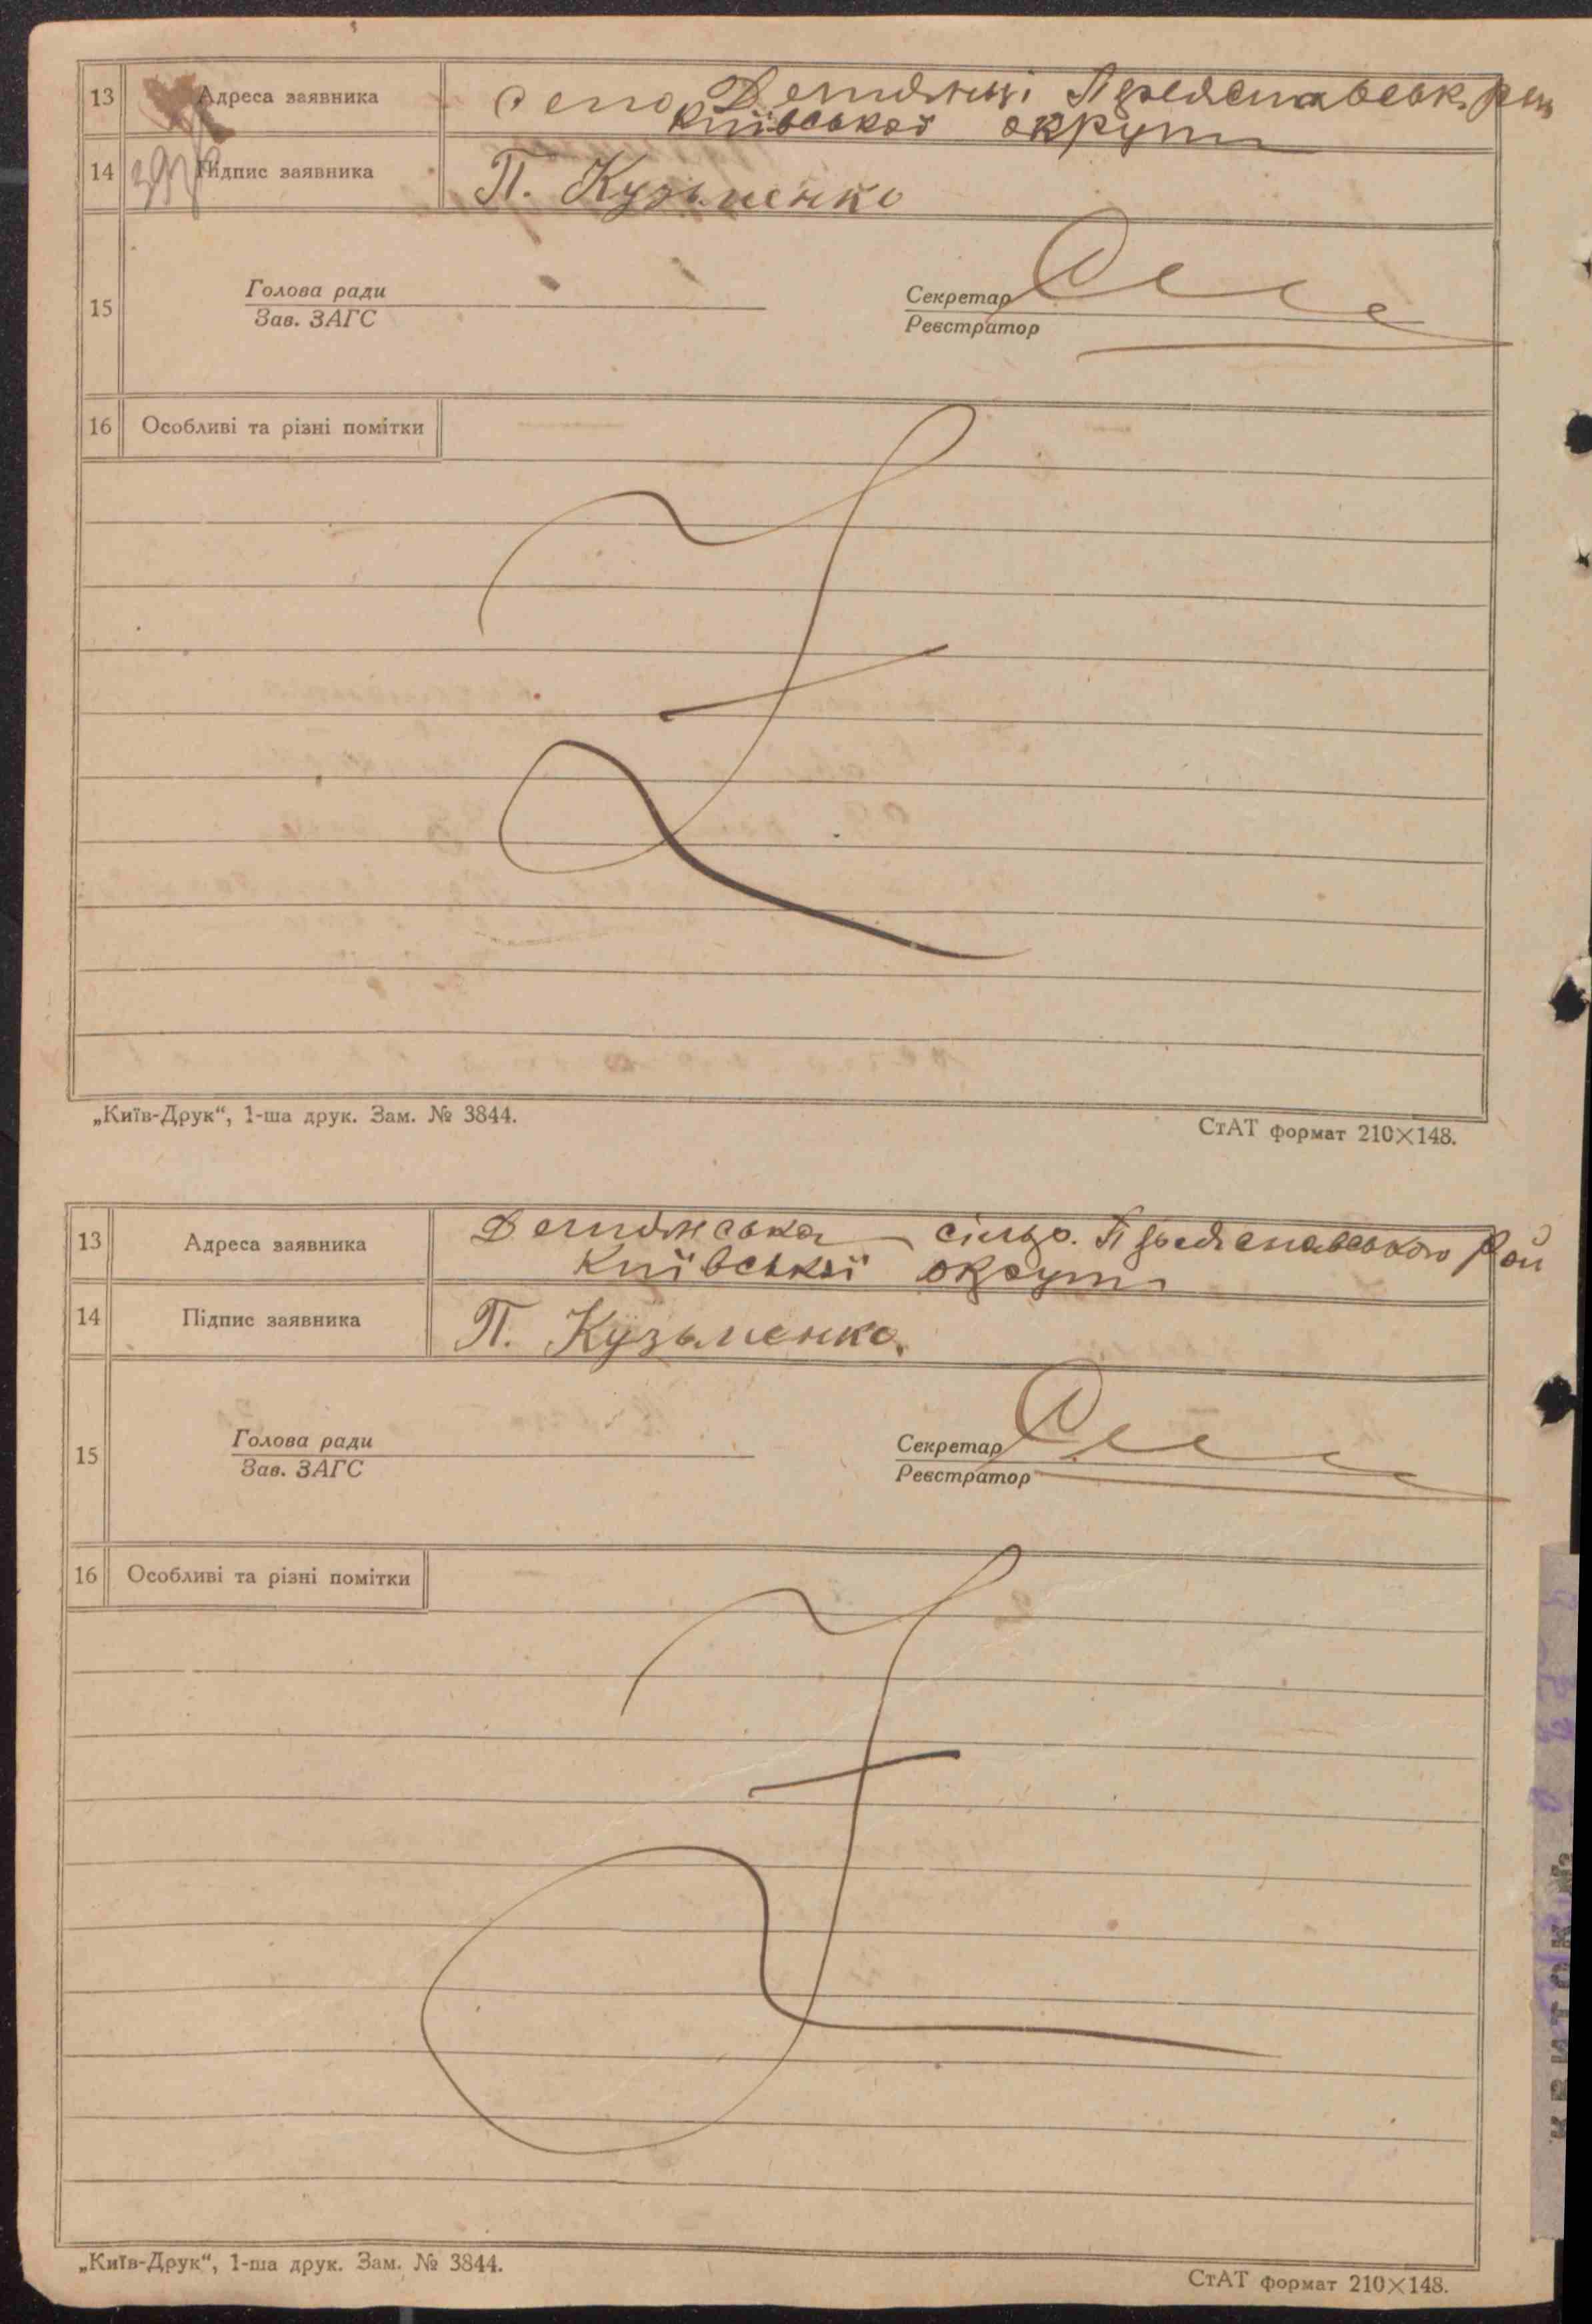 13 Адреса заявника село Демянці Переяславськ. рай
Київської округи
14 Підпис заявника П. Кузьменко
15 Голова ради
Зав. ЗАГС
Секретар
Реєстратор
16 Особливі та різні помітки
„Київ-Друк“, 1-ша друк. Зам. № 3844.
СтАТ формат 210×148.
13 Адреса заявника Демянська сільр. Переяславського рай
Київської округи
14 Підпис заявника П. Кузьменко.
15 Голова ради
Зав. ЗАГС
Секретар
Реєстратор
16 Особливі та різні помітки
„Київ-Друк“, 1-ша друк. Зам. № 3844.
СтАТ формат 210×148.
КВИТОК №